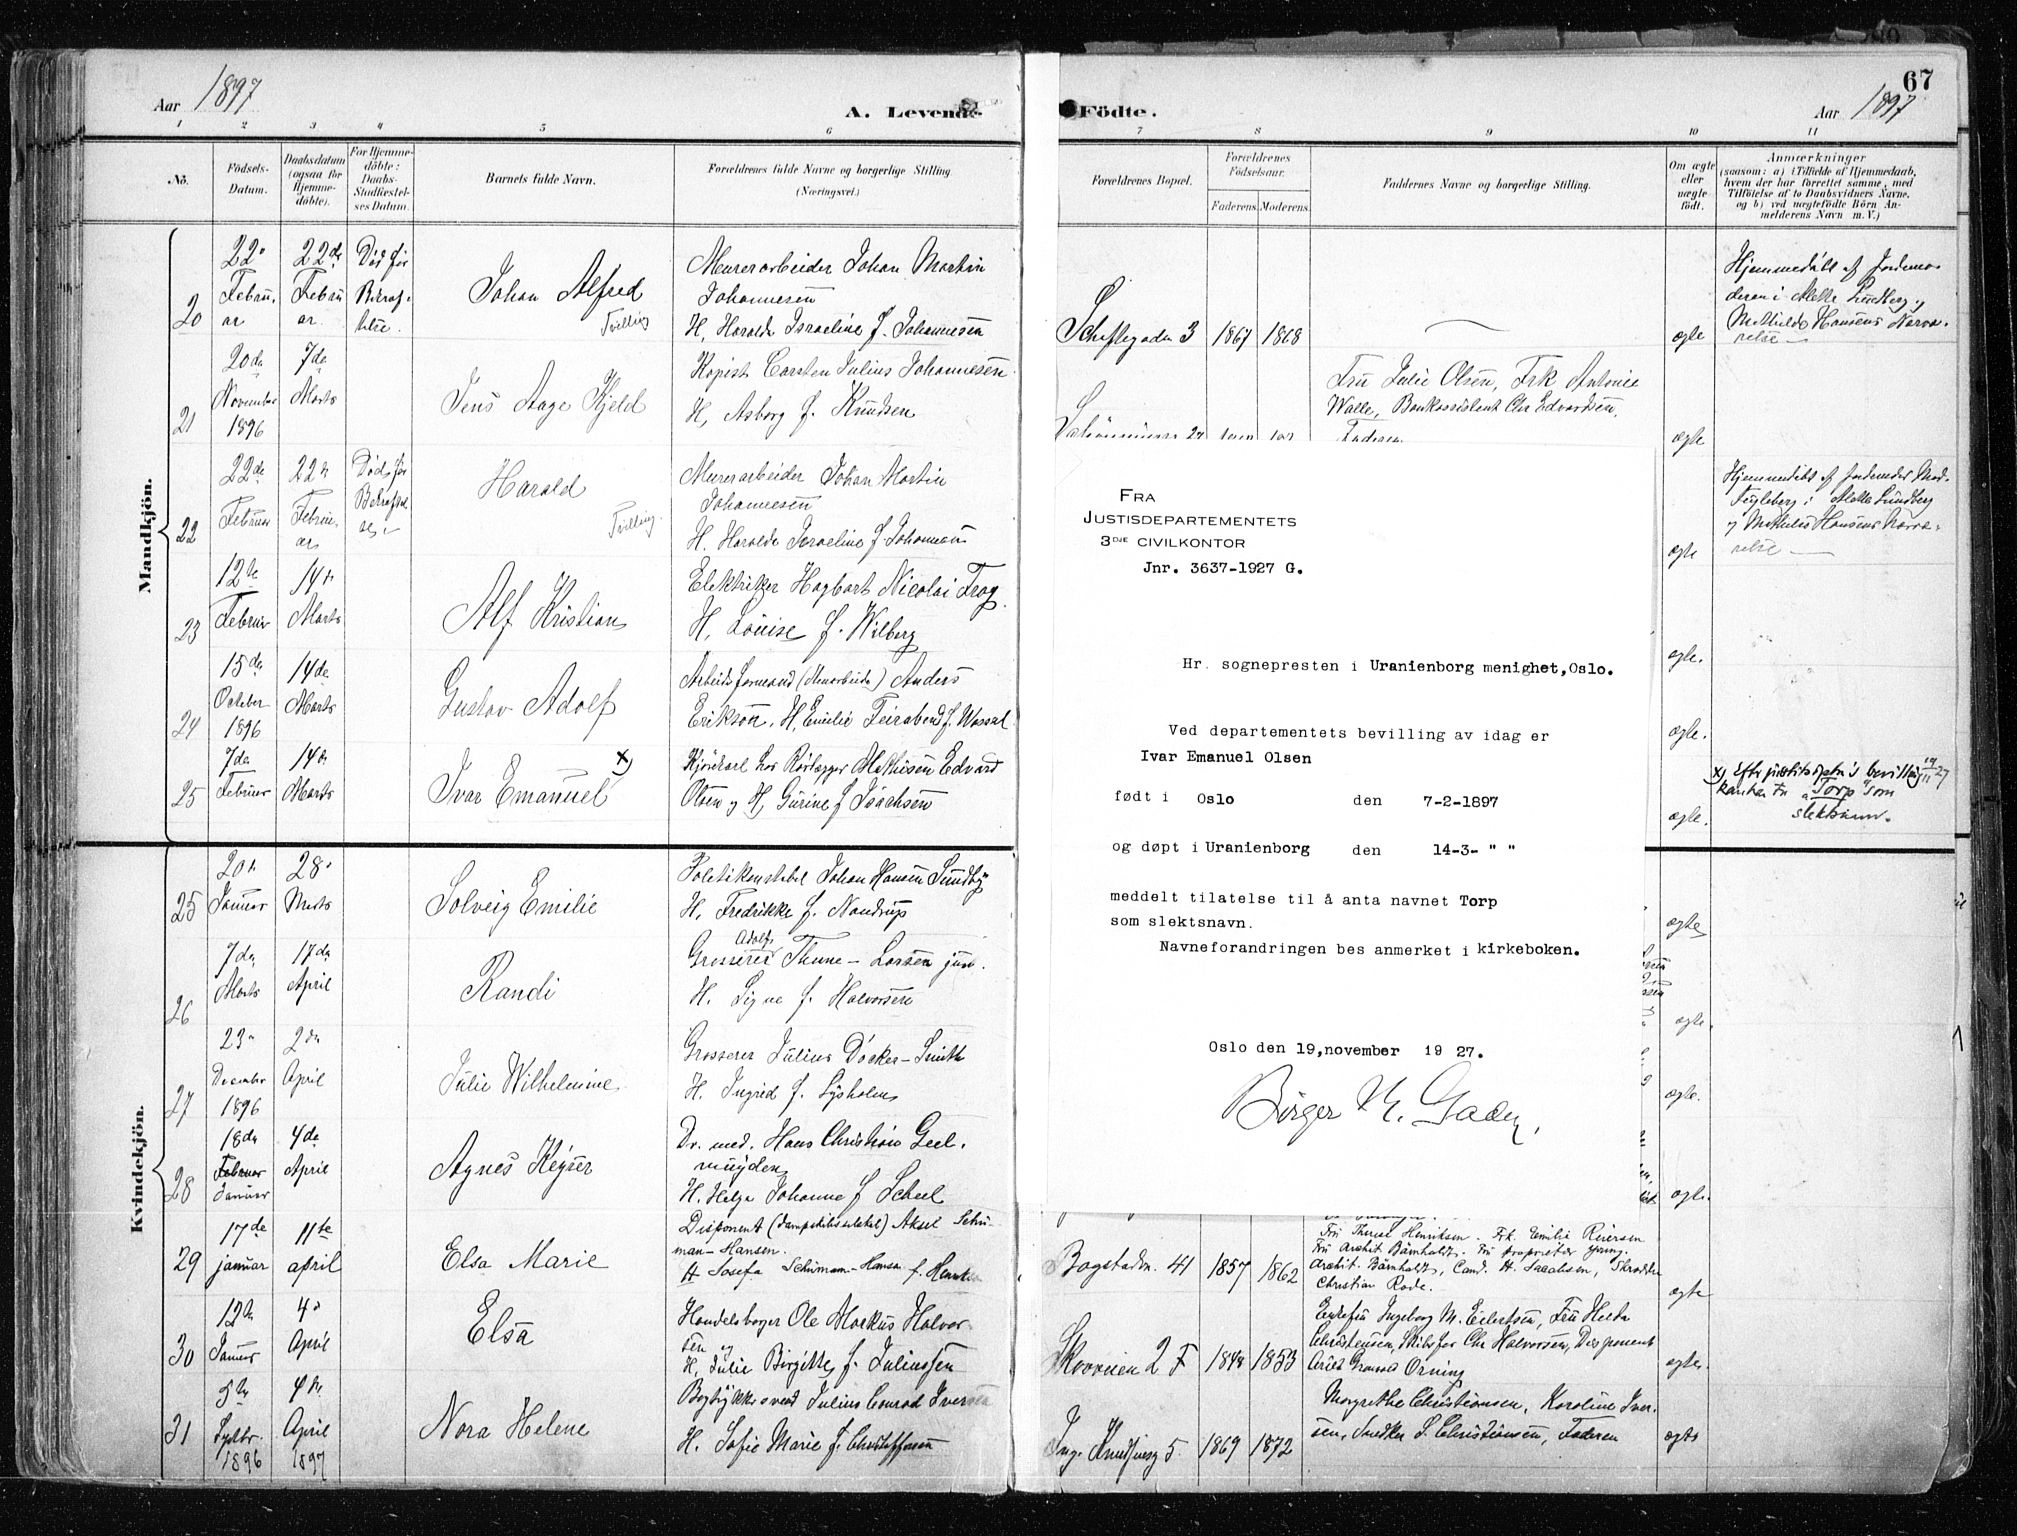 67
Aar 1897
A. Levende
Födte.
Aar 1897
1 2 3 4 5 6 7 8 9 10 11
No.
Födsels-
Datum.
Daabsdatum
(ogsaa for
Hjemme-
döbte).
For Hjemme-
döbte:
Daabs-
Stadfæstel-
ses Datum.
Barnets fulde Navn.
Forældrenes fulde Navne og borgerlige Stilling
(Næringsvei.)
Forældrenes Bopæl.
Forældrenes
Födselsaar.
Faderens.
Moderens.
Faddernes Navne og borgerlige Stilling.
Om ægte
eller
uægte
födt.
Anmærkninger
(saasom: a) i Tilfælde af Hjemmedaab,
hvem der har forrettet samme, med
Tilföielse af to Daabsvidners Navne,
og b) ved uægtefödte Börn An-
melderens Navn m. V.)
Mandkjön.
20
22
Februar
22de
Februar
Död før
Bekræftelse.
Johan Alfred
Tvilling
Murerarbeider Johan Martin
Johannesen
H. Harolda Israeline f. Johannesen
Schaftegaden 3
1867
1868
ægte
Hjemmedöbt af Jordemo-
Alette Lundberg
Mathilde Hansens Nærvæ-
relse
21
20de
November
1896
7de
Marts
Jens Aage Kjeld
Kopist Carsten Julius Johannesen
H. Asborg f. Knudsen
Fru Julie Olsen, Frk Antonie
Walle, Bankassistent Chr Edvardsen,
Faderen
ægte
22
22de
Februar
22de
Februar
Död før
Harald
Tvilling.
Murerarbeider Johan Martin
Johannesen
H. Harolda Israeline f. Johannesen
ægte
Hjemmedöbt af
Fugleberg i Alette Lundberg
og Mathilde Hansens Nærvæ-
relse
23
12te
Februar
14de
Marts
Alf Kristian
Elektriker Hagbart Nicolai Frog
H. Louise f. Wilberg
ægte.
24
15de
October
1896
14de
Marts
Gustav Adolf
Arbeidsformand (Murarbeide) Anders
Erikson, H. Emilie
ægte.
25
7de
Februar
14de
Marts
Ivar Emanuel x)
Kjørekarl hos Rørlægger Mathisen Edvard
Olsen og H. Gurine f Isachsen
ægte.
x) Efter justitsdptn's bevilling 19/11 27
kan han føre "Torp" som
slektsnavn.
Kvindekjön.
25
20de
Januar
28
Marts
Solveig Emilie
Politikonstabel Johan Hansen Sundby
H. Fredrikke f. Nandrup
ægte
26
7de
Marts
17de
April
Randi
Adolf
Grosserer Thune-Larsen jun.
H. Signe f. Halvorsen
ægte.
27
23
December
1896
2den
April
Julie Wilhelmine
Grosserer Julius Döcker-Smith
H. Ingrid f. Lysholm
ægte.
28
18de
Februar
Januar
4de
April
Agnes Keyser
Dr. med. Hans Christian Geel-
muyden
H. Helga Johanne f Scheel
ægte.
29
17de
januar
11te
april
Elsa Marie
Disponent (dampskibsselskab) Aksel Schu-
man-Hansen.
H Josefa Schuman-Hansen f. Henriksen
Bogstadvn. 41
1857
1862
Fru Thrine Henriksen. Frk. Emilie Reiersen
Fru Arkit Barnholdt.
Arkit. Barnholdt, Cand. H. Jacobsen,
Christian Rode.
ægte
30
12te
Januar
4
April
Elsa
Handelsborger Ole Markus Halvor-
sen og
H. Julie Birgitte f. Juliussen
Skovveien 2 F
1848
1853
Enkefru Ingeborg M. Eilertsen, Fru Helda
Christensen, Skibsfør Chr Halvorsen, Disponent
Orning
ægte.
31
5te
Septbr.
1896
4de
April
1897
Nora Helene
Bogtrykkersvend Julius Conrad Iversen
H. Sofie Marie f. Christoffersen
Inge Knudsensg 5.
1869
1872
Margrethe Christiansen, Karoline Iver-
sen, Snedker S. Christiansen, Faderen
ægte
FRA
JUSTISDEPARTEMENTETS
3DJE CIVILKONTOR
Jnr. 3637-1927 G.
Hr. sognepresten i Uranienborg menighet, Oslo.
Ved departementets bevilling av idag er
Ivar Emanuel Olsen
født i Oslo den 7-2-1897
og døpt i Uranienborg den 14-3- " "
meddelt tilatelse til å anta navnet Torp
som slektsnavn.
Navneforandringen bes anmerket i kirkeboken.
Oslo den 19, november 1927.